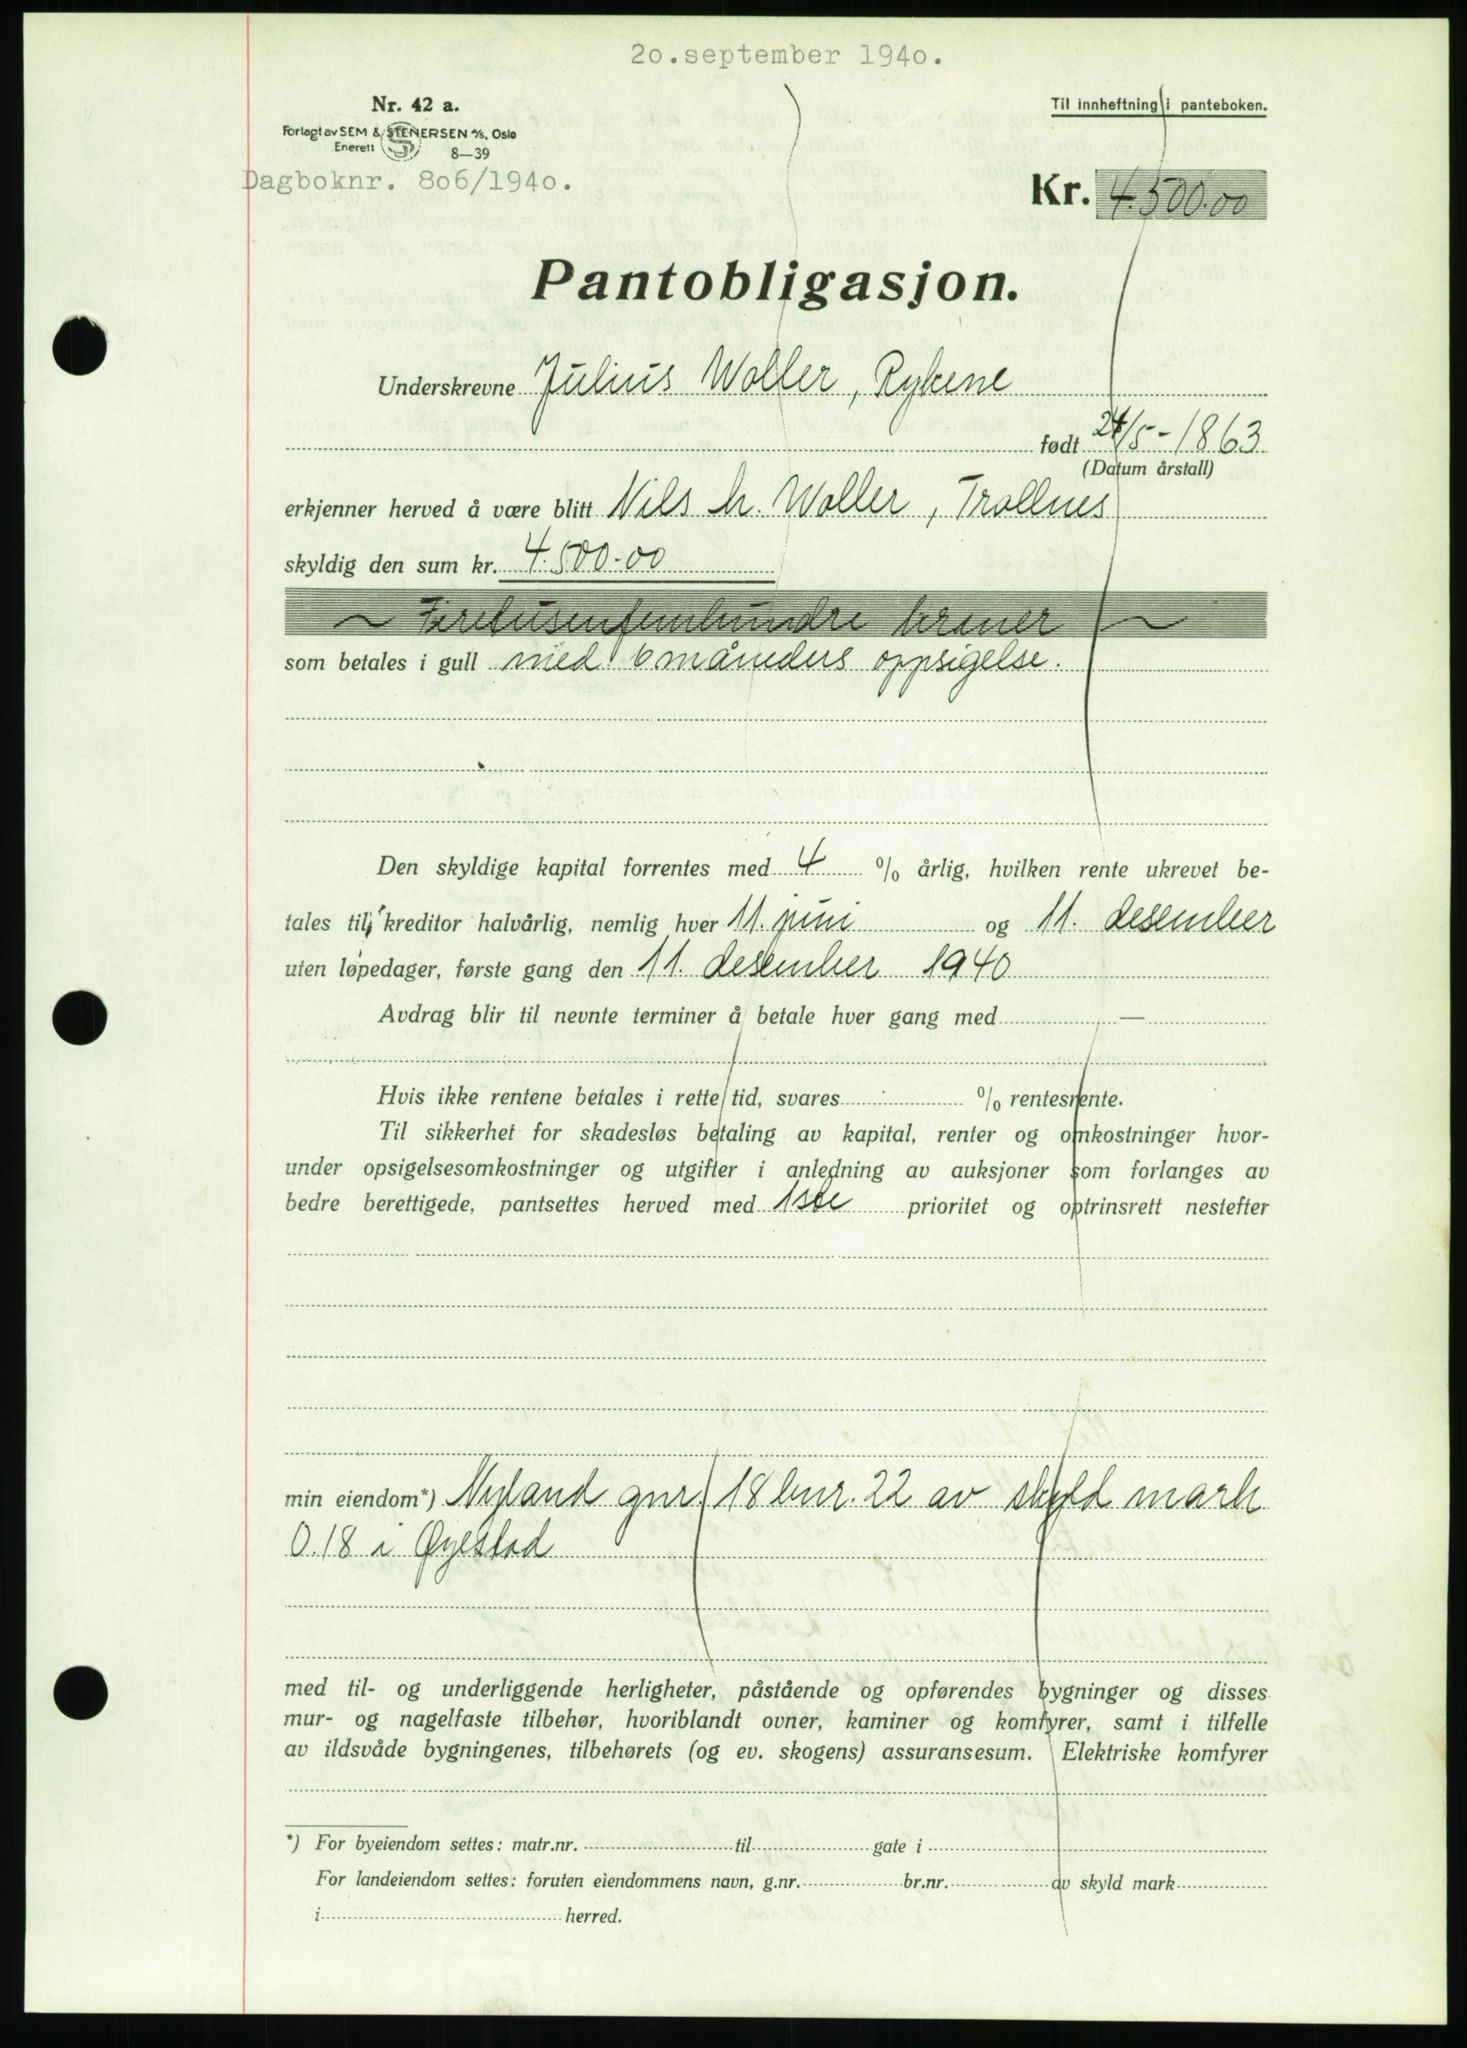 20.september 1940.
Nr. 42 a.
Til innheftning i panteboken.
Forlagt av SEM & STENERSEN A/S, Oslo
Enerett 8—39
Dagboknr. 806/1940.
Kr. 4.500.00
Pantobligasjon.
Underskrevne Julius Woller, Rykene
født 24/5-1863
(Datum årstall)
erkjenner herved å være blitt Nils Chr. Woller, Trollnes
skyldig den sum kr. 4.500.00
~ Firetusenfemhundre kroner ~
som betales i gull med 6 måneders oppsigelse.
Den skyldige kapital forrentes med 4 % årlig, hvilken rente ukrevet be-
tales til kreditor halvårlig, nemlig hver 11. juni og 11. desember
uten løpedager, første gang den 11. desember 1940
Avdrag blir til nevnte terminer å betale hver gang med —
Hvis ikke rentene betales i rette tid, svares % rentesrente.
Til sikkerhet for skadesløs betaling av kapital, renter og omkostninger hvor-
under opsigelsesomkostninger og utgifter i anledning av auksjoner som forlanges av
bedre berettigede, pantsettes herved med 1ste prioritet og optrinsrett nestefter
min eiendom*) Nyland gnr. 18 bnr. 22 av skyld mark
0.18 i Øyestad
med til- og underliggende herligheter, påstående og opførendes bygninger og disses
mur- og nagelfaste tilbehør, hvoriblandt ovner, kaminer og komfyrer, samt i tilfelle
av ildsvåde bygningenes, tilbehørets (og ev. skogens) assuransesum. Elektriske komfyrer
*) For byeiendom settes: matr.nr. til gate i
For landeiendom settes: foruten eiendommens navn, g.nr. br.nr. av skyld mark
i herred.